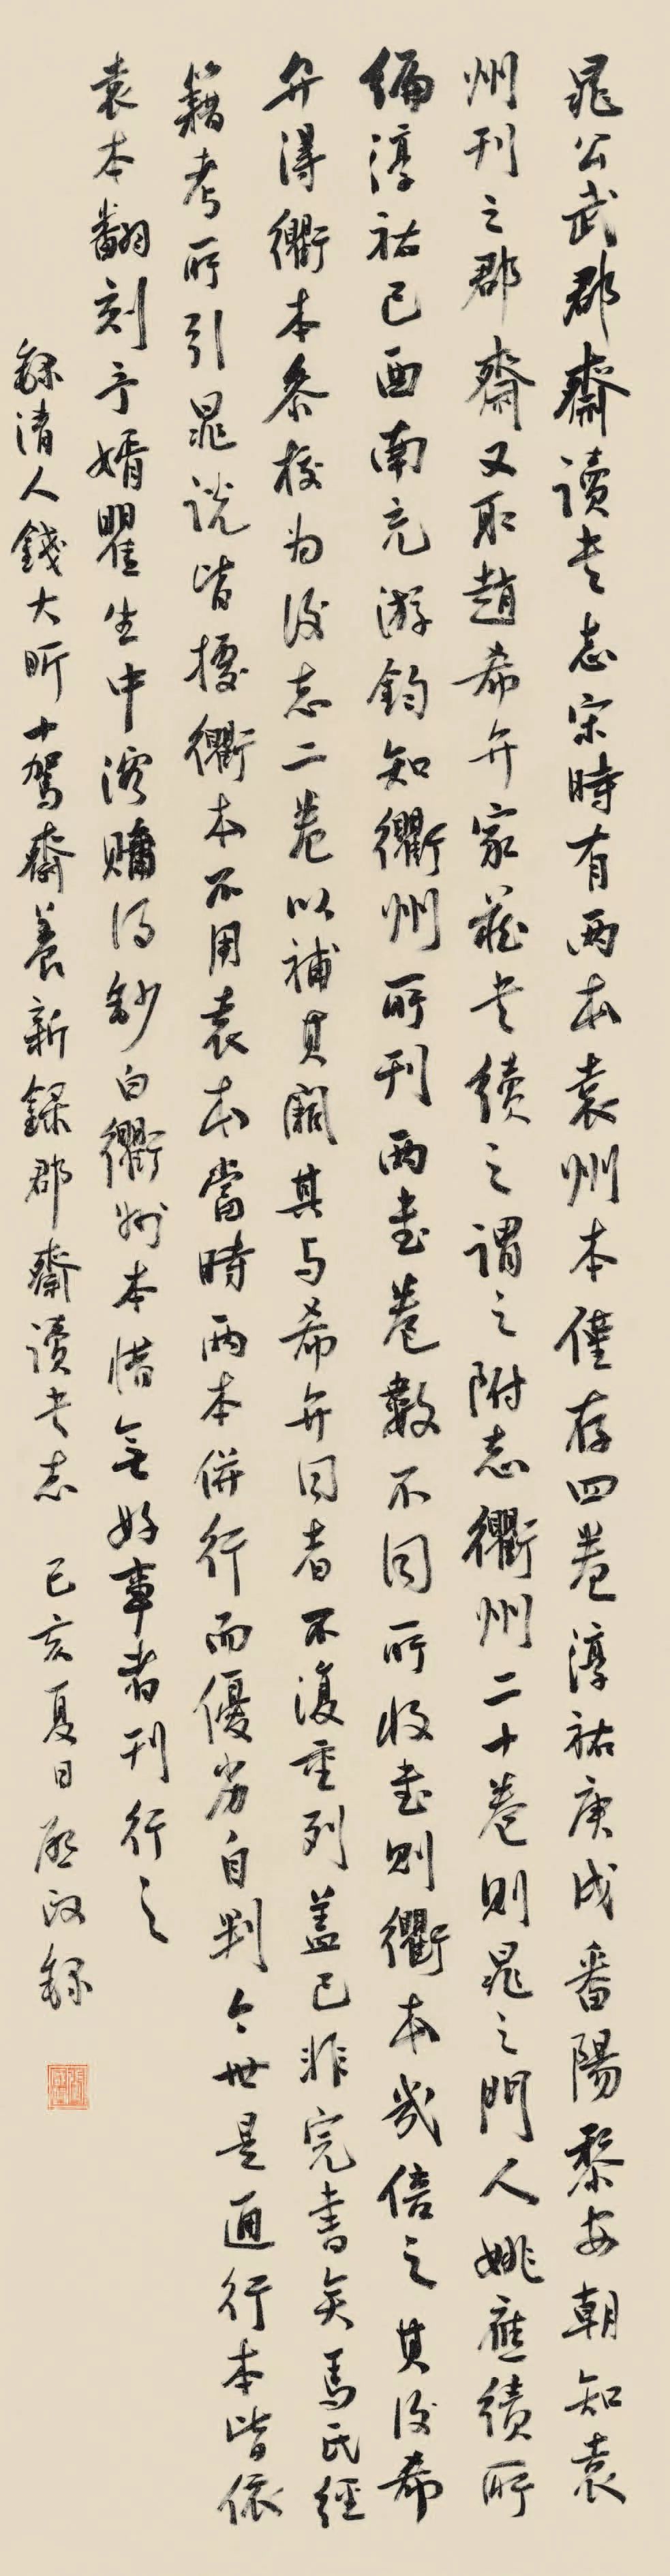 晁公武郡齋讀書志宋時有兩本袁州本僅存四卷淳祐庚戌番陽黎安朝知袁
州刊之郡齋又取趙希弁家藏書續之謂之附志衢州二十卷則晁之門人姚應績所
編淳祐己酉南充游鈞知衢州所刊兩書卷數不同所收書則衢本幾倍之其後希
弁得衢本參校為後志二卷以補其闕其与希弁同者不復重列蓋已非完書矣馬氏經
籍考所引晁說皆據衢本不用袁本當時兩本併行而優劣自判今世是通行本皆依
袁本翻刻予婿瞿生中溶購得鈔白衢州本惜無好事者刊行之
錄清人錢大昕十駕齋養新錄郡齋讀書志 己亥夏日 啟政錄